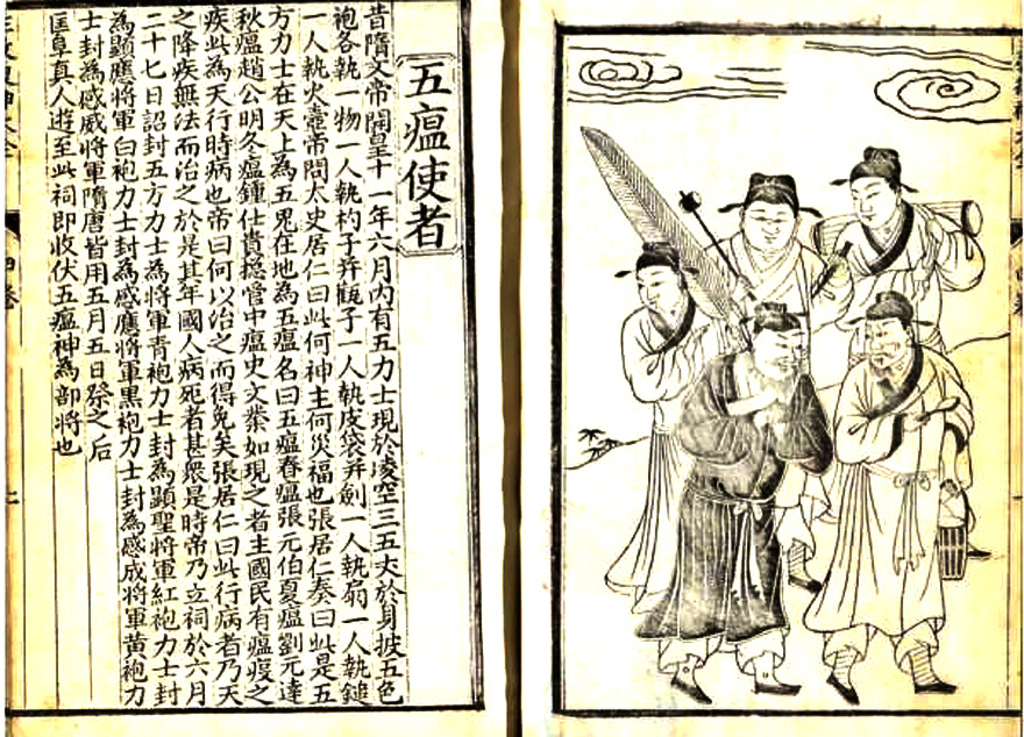 五瘟使者
昔隋文帝開皇十一年六月內有五力士現於凌空三五丈於身披五色
袍各執一物一人執杓子并觀子一人執皮袋并劍一人執扇一人執鎚
一人執火壺帝問太史居仁曰此何神主何災福也張居仁奏曰此是五
方力士在天上為五鬼在地為五瘟名曰五瘟春瘟張元伯夏瘟劉元達
秋瘟趙公明冬瘟鍾仕貴總管中瘟史文業如現之者主國民有瘟疫之
疾此為天行時病也帝曰何以治之而得免矣張居仁曰此行病者乃天
之降疾無法而治之於是其年國人病死者甚眾是時帝乃立祠於六月
二十七日詔封五方力士為將軍青袍力士封為顯聖將軍紅袍力士封
為顯應將軍白袍力士封為感應將軍黑袍力士封為感成將軍黃袍力
士封為感威將軍隋唐皆用五月五日祭之后
匡阜真人遊至此祠即收伏五瘟神為部將也